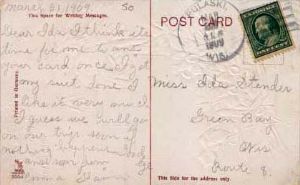 March 31 1909
50
This Space for Writing Messages.
POST CARD
PULASKI,
1909
WIS.
Dear Ida I think its
time for me to write
your card once I got
my suit done I
like it very much
I guess we will go
on our trip soon if
nothing
answer soon from
Printed in Germany
Miss Ida Stender
Green Bay
Wis
Route 8.
This Side for the address only